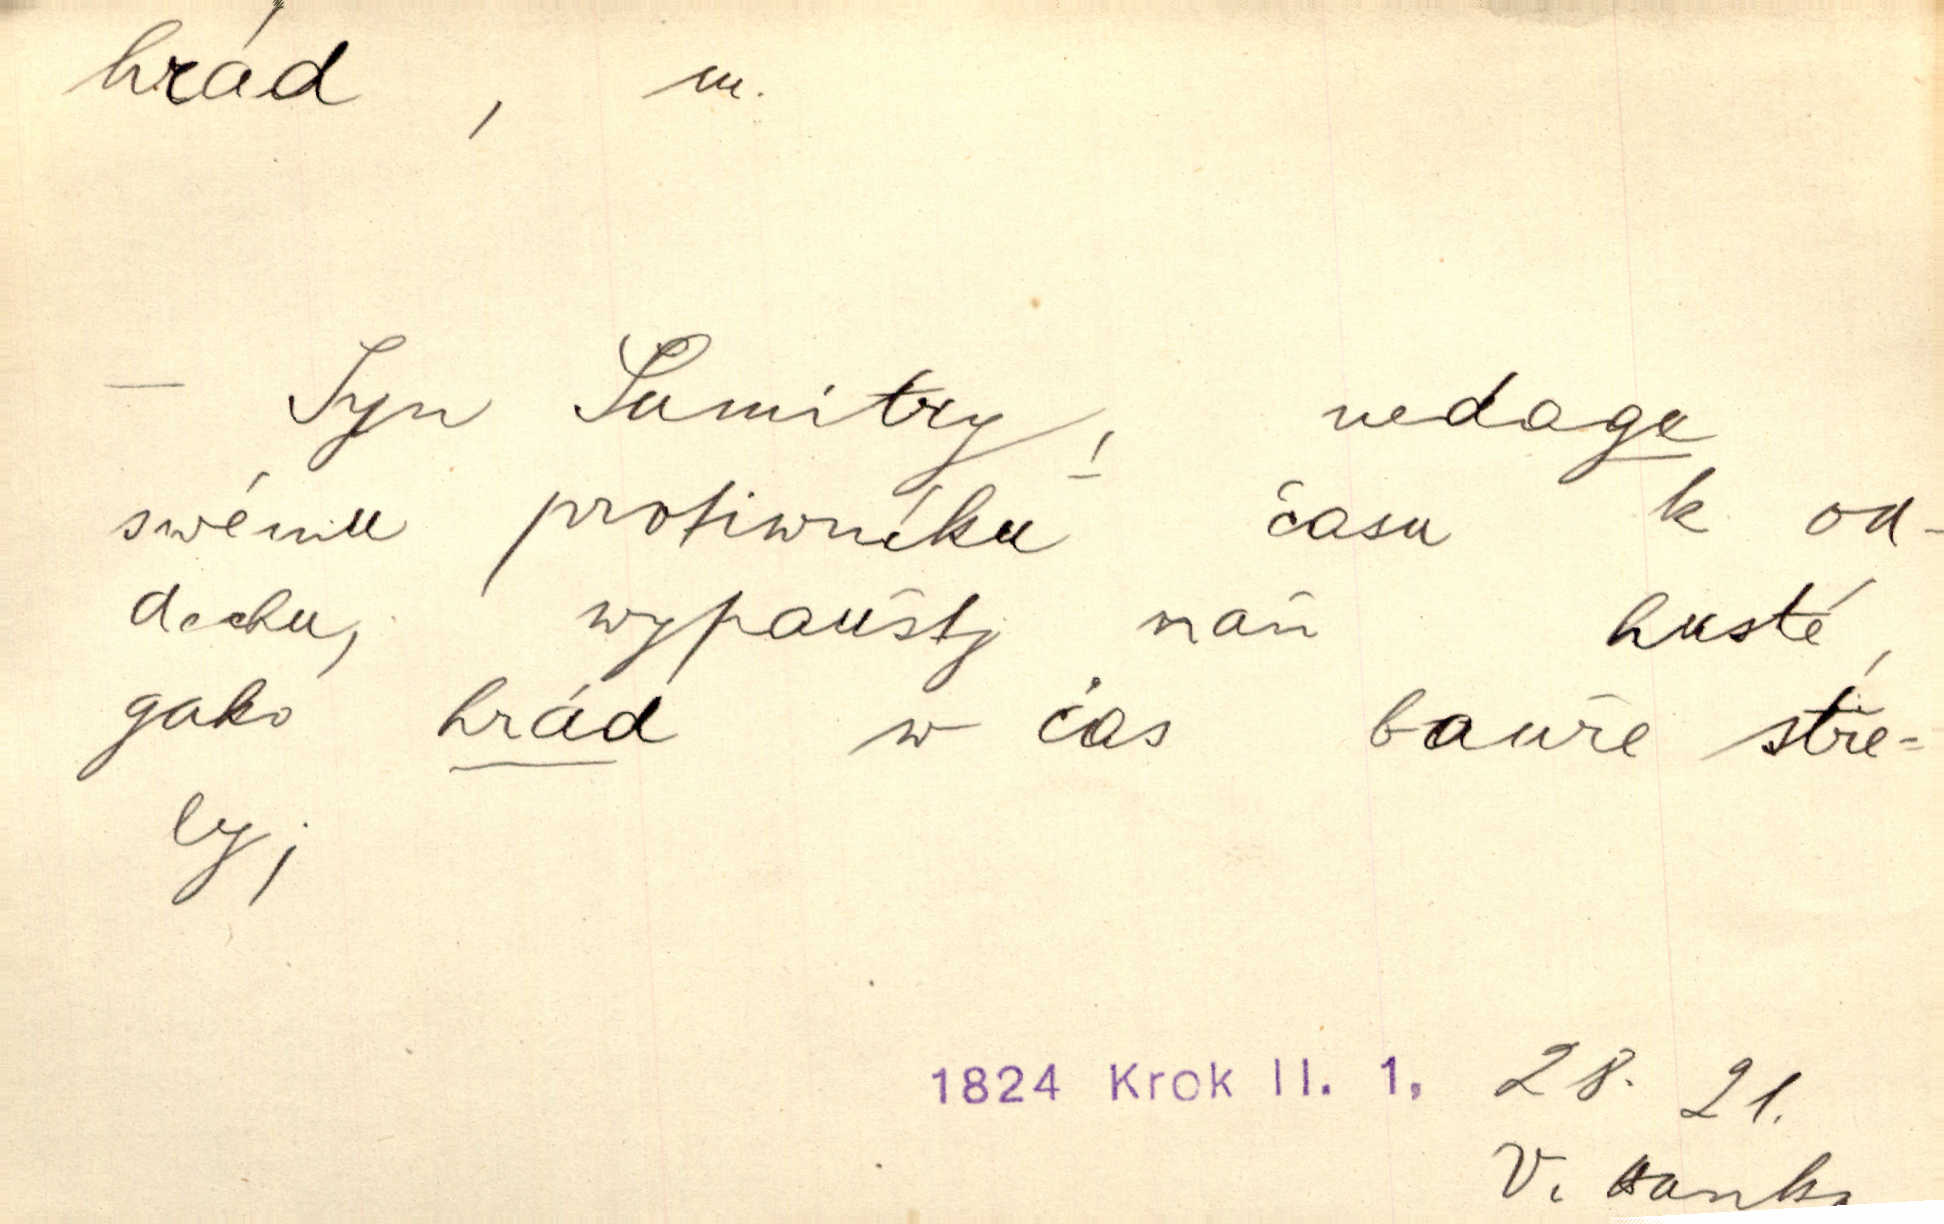 hrád, m.
— Syn Sumitry, nedage
swému protiwníku času k od-
dechu, wypauštj naň husté,
gako hrád w čas bauře stře-
ly;
1824 Krok II. 1, 28. 21.
V. Hanka